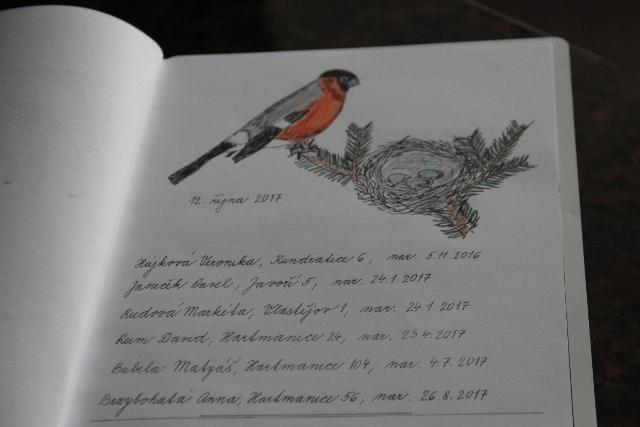 12. října 2017
Hájková Veronika, Kundratice 6, nar. 5.11.2016
Janeček Pavel, Javoří 5, nar. 24.1.2017
Rudová Markéta, Vlastějov 1, nar. 24.1.2017
Rům David, Hartmanice 24, nar. 23.4.2017
Bubela Matyáš, Hartmanice 104, nar. 4.7.2017
Brzybohatá Anna, Hartmanice 56, nar. 26.8.2017